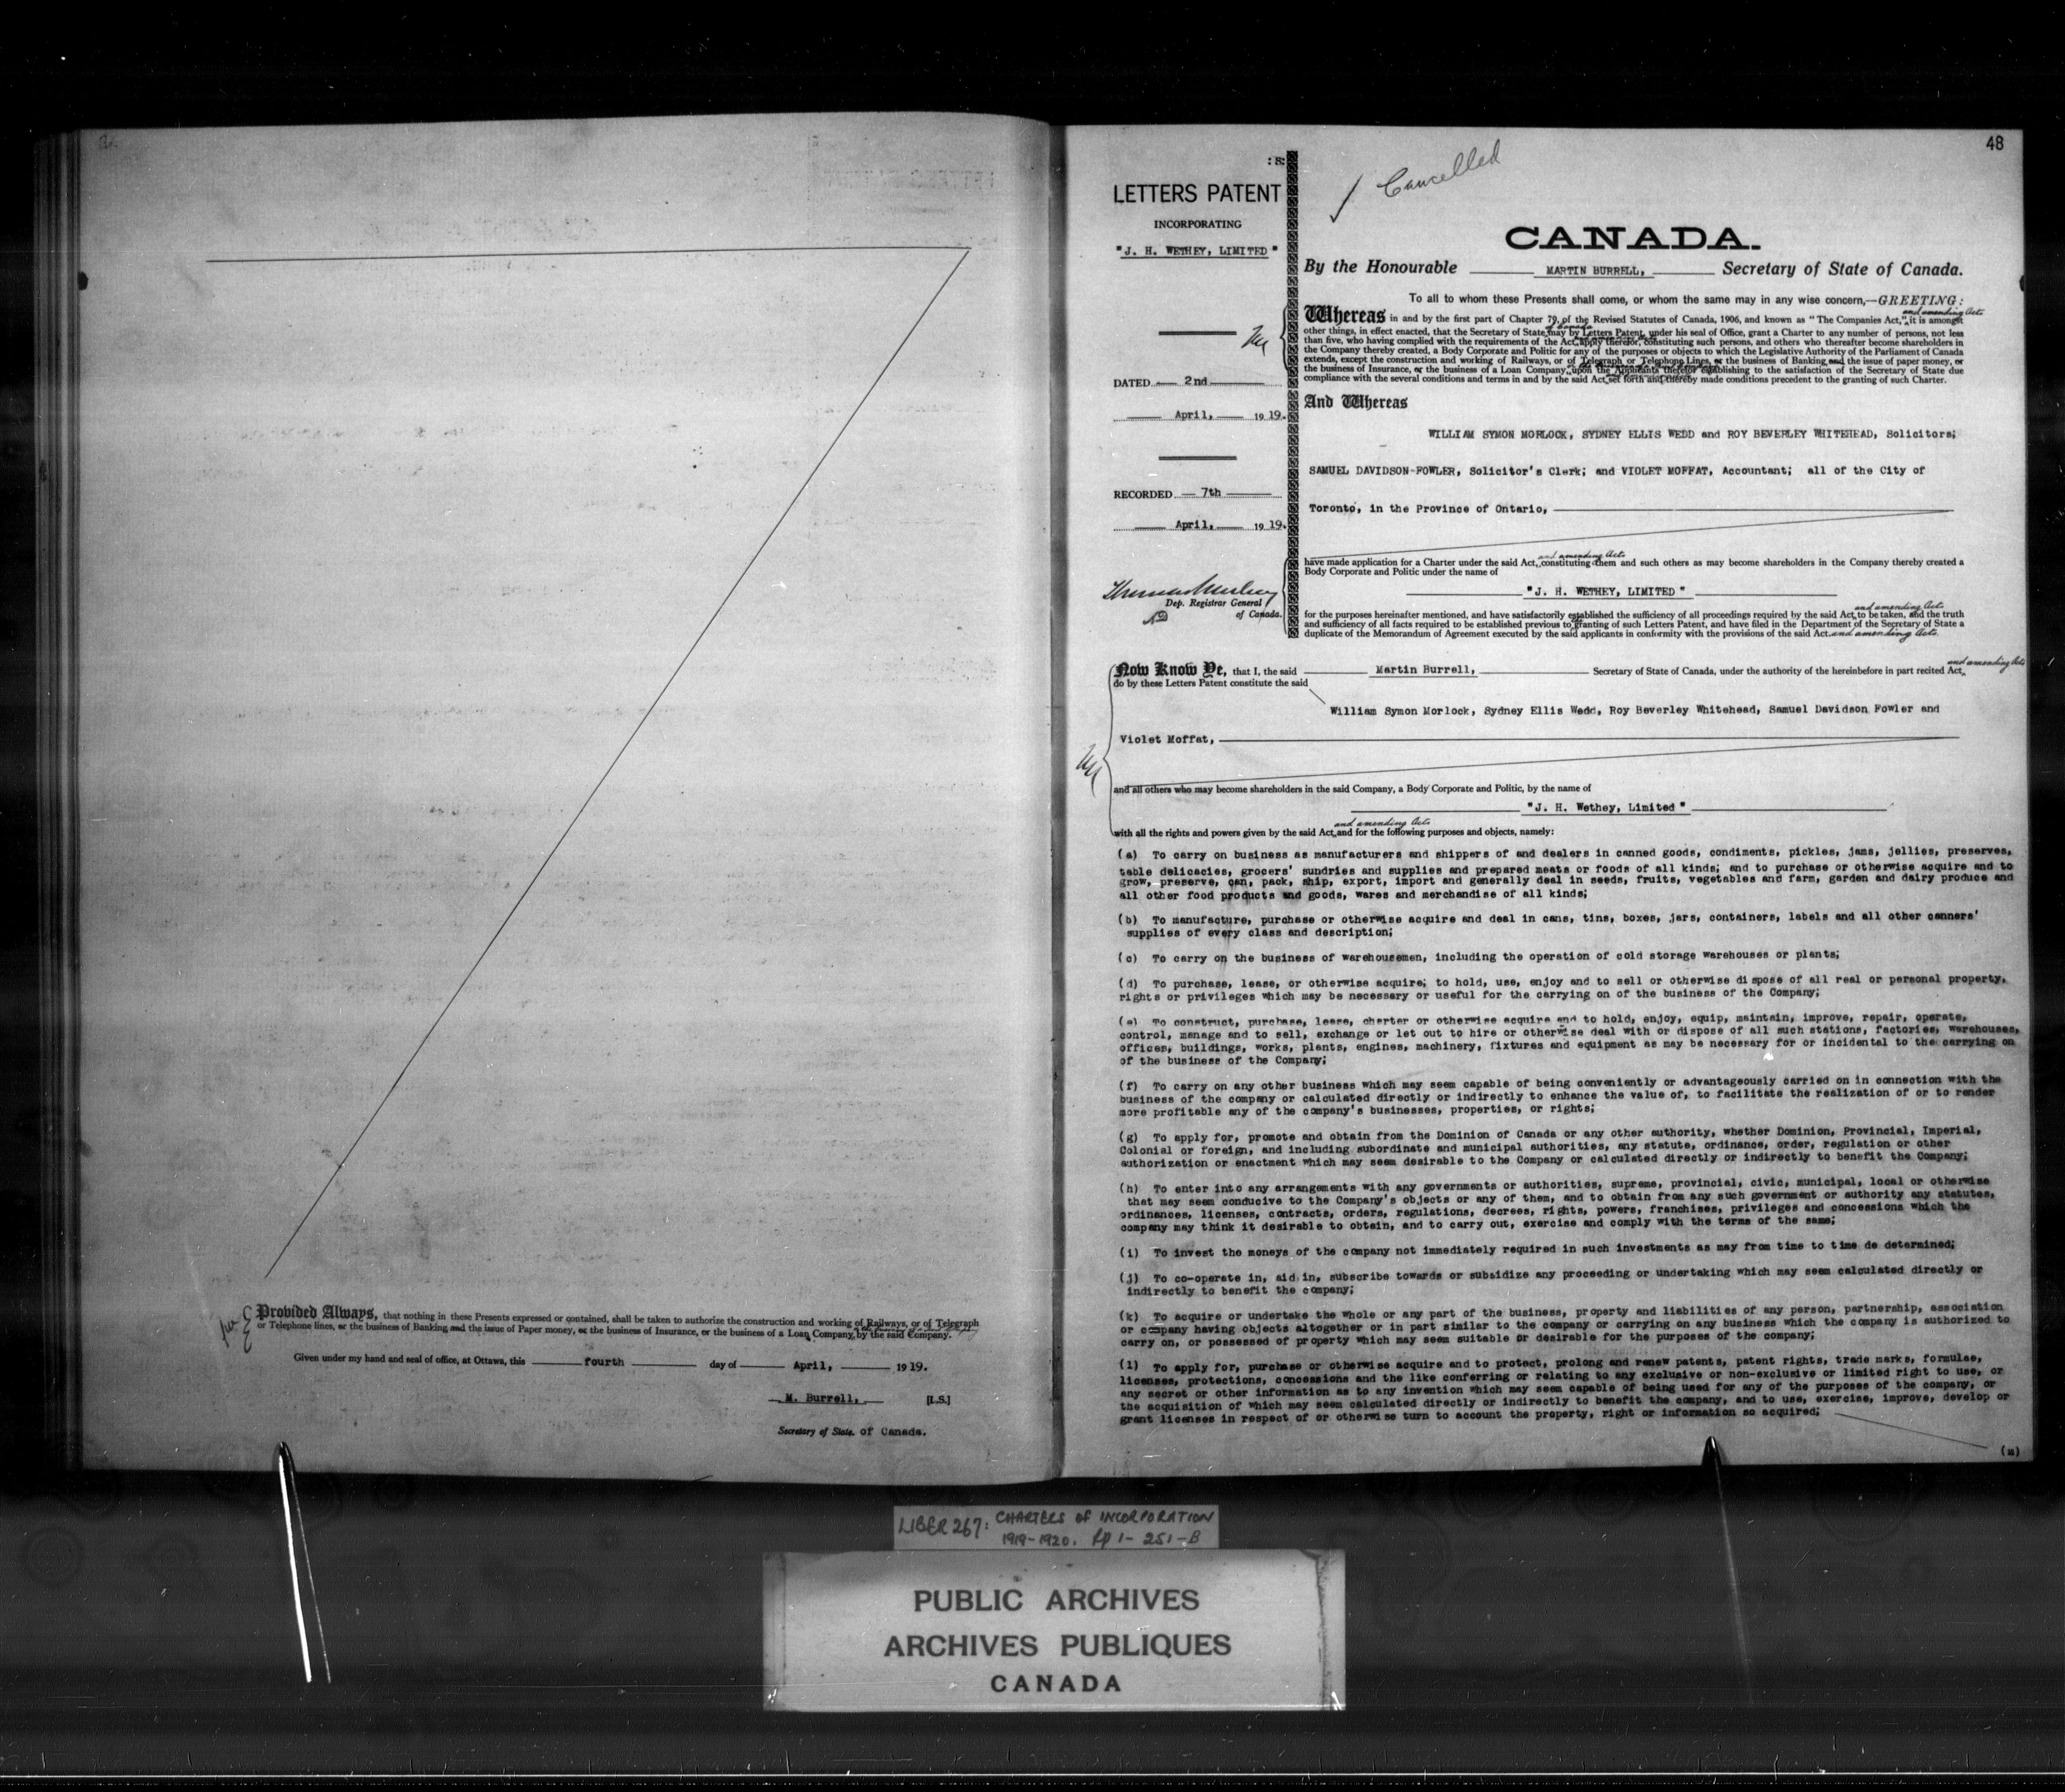 Provided Always, that nothing in these Presents expressed or contained, shall be taken to authorize the construction and working of Railways, or of Telegraph
or Telephone lines, or the business of Banking and the issue of Paper money, or the business of Insurance, or the business of a Loan Company, by the said Company.
Given under my hand and seal of office, at Ottawa, this fourth day of April, 19 19.
M. Burrell, [L.S.]
Secretary of State. of Canada.
48
Cancelled
LETTERS PATENT
INCORPORATING
"J. H. WETHEY, LIMITED"
DATED 2nd
April, 19 19.
RECORDED 7th
April, 19 19.
Dep. Registrar General
of Canada.
CANADA.
By the Honourable MARTIN BURRELL, Secretary of State of Canada.
To all to whom these Presents shall come, or whom the same may in any wise concern,—GREETING:
and amending Acts
Whereas in and by the first part of Chapter 79, of the Revised Statutes of Canada, 1906, and known as "The Companies Act," it is amongst
other things, in effect enacted, that the Secretary of State of Canada may by Letters Patent, under his seal of Office, grant a Charter to any number of persons, not less
than five, who having complied with the requirements of the Act, apply therefor, constituting such persons, and others who thereafter become shareholders in
the Company thereby created, a Body Corporate and Politic for any of the purposes or objects to which the Legislative Authority of the Parliament of Canada
extends, except the construction and working of Railways, or of Telegraph or Telephone Lines, or the business of Banking and the issue of paper money, or
the business of Insurance, or the business of a Loan Company, upon the Applicants therefor establishing to the satisfaction of the Secretary of State due
compliance with the several conditions and terms in and by the said Act set forth and thereby made conditions precedent to the granting of such Charter.
And Whereas
WILLIAM SYMON MORLOCK, SYDNEY ELLIS WEDD and ROY BEVERLEY WHITEHEAD, Solicitors;
SAMUEL DAVIDSON-FOWLER, Solicitor's Clerk; and VIOLET MOFFAT, Accountant; all of the City of
Toronto, in the Province of Ontario,
and amending Acts
have made application for a Charter under the said Act, constituting them and such others as may become shareholders in the Company thereby created a
Body Corporate and Politic under the name of
"J. H. WETHEY, LIMITED"
and amending Acts
for the purposes hereinafter mentioned, and have satisfactorily established the sufficiency of all proceedings required by the said Act to be taken, and the truth
and sufficiency of all facts required to be established previous to granting of such Letters Patent, and have filed in the Department of the Secretary of State a
duplicate of the Memorandum of Agreement executed by the said applicants in conformity with the provisions of the said Act. and amending Acts.
and amending Acts
Now Know Ye, that I, the said Martin Burrell, Secretary of State of Canada, under the authority of the hereinbefore in part recited Act,
do by these Letters Patent constitute the said
William Symon Morlock, Sydney Ellis Wedd, Roy Beverley Whitehead, Samuel Davidson Fowler and
Violet Moffat,
and all others who may become shareholders in the said Company, a Body Corporate and Politic, by the name of
"J. H. Wethey, Limited"
and amending Acts
with all the rights and powers given by the said Act, and for the following purposes and objects, namely:
(a) To carry on business as manufacturers and shippers of and dealers in canned goods, condiments, pickles, jams, jellies, preserves,
table delicacies, grocers' sundries and supplies and prepared meats or foods of all kinds; and to purchase or otherwise acquire and to
grow, preserve, can, pack, ship, export, import and generally deal in seeds, fruits, vegetables and farm, garden and dairy produce and
all other food products and goods, wares and merchandise of all kinds;
(b) To manufacture, purchase or otherwise acquire and deal in cans, tins, boxes, jars, containers, labels and all other canners'
supplies of every class and description;
(c) To carry on the business of warehousemen, including the operation of cold storage warehouses or plants;
(d) To purchase, lease, or otherwise acquire; to hold, use, enjoy and to sell or otherwise dispose of all real or personal property,
rights or privileges which may be necessary or useful for the carrying on of the business of the Company;
(e) To construct, purchase, lease, charter or otherwise acquire and to hold, enjoy, equip, maintain, improve, repair, operate,
control, manage and to sell, exchange or let out to hire or otherwise deal with or dispose of all such stations, factories, warehouses,
offices, buildings, works, plants, engines, machinery, fixtures and equipment as may be necessary for or incidental to the carrying on
of the business of the Company;
(f) To carry on any other business which may seem capable of being conveniently or advantageously carried on in connection with the
business of the company or calculated directly or indirectly to enhance the value of, to facilitate the realization of or to render
more profitable any of the company's businesses, properties, or rights;
(g) To apply for, promote and obtain from the Dominion of Canada or any other authority, whether Dominion, Provincial, Imperial,
Colonial or foreign, and including subordinate and municipal authorities, any statute, ordinance, order, regulation or other
authorization or enactment which may seem desirable to the Company or calculated directly or indirectly to benefit the Company;
(h) To enter into any arrangements with any governments or authorities, supreme, provincial, civic, municipal, local or otherwise
that may seem conducive to the Company's objects or any of them, and to obtain from any such government or authority any statutes,
ordinances, licenses, contracts, orders, regulations, decrees, rights, powers, franchises, privileges and concessions which the
company may think it desirable to obtain, and to carry out, exercise and comply with the terms of the same;
(i) To invest the moneys of the company not immediately required in such investments as may from time to time de determined;
(j) To co-operate in, aid in, subscribe towards or subsidize any proceeding or undertaking which may seem calculated directly or
indirectly to benefit the company;
(k) To acquire or undertake the whole or any part of the business, property and liabilities of any person, partnership, association
or company having objects altogether or in part similar to the company or carrying on any business which the company is authorized to
carry on, or possessed of property which may seem suitable or desirable for the purposes of the company;
(l) To apply for, purchase or otherwise acquire and to protect, prolong and renew patents, patent rights, trade marks, formulae,
licenses, protections, concessions and the like conferring or relating to any exclusive or non-exclusive or limited right to use, or
any secret or other information as to any invention which may seem capable of being used for any of the purposes of the company, or
the acquisition of which may seem calculated directly or indirectly to benefit the company, and to use, exercise, improve, develop or
grant licenses in respect of or otherwise turn to account the property, right or information so acquired;
(m)
LIBER 267: CHARTERS OF INCORPORATION
1919-1920. pp 1-251-B
PUBLIC ARCHIVES
ARCHIVES PUBLIQUES
CANADA